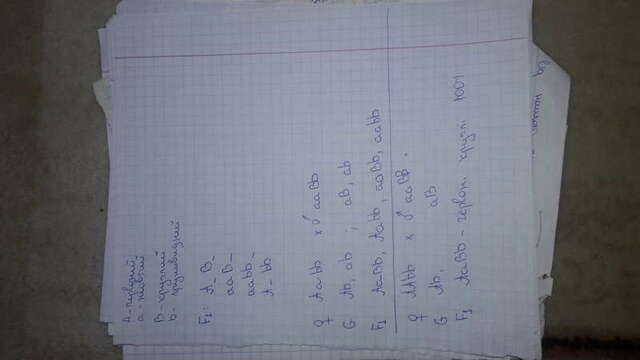 A - червоний
a - жовтий
B - круглий
b - грушовидний
F₁: A_ B_
aa B_
aabb_
A_ bb
♀ Aabb x ♂ aaBb
G Ab, ab ; aB, ab
F₁ AaBb, Aabb, aaBb, aabb
♀ AAbb x ♂ aaBB.
G Ab, aB
F₁ AaBb - червон. кругл. 100%